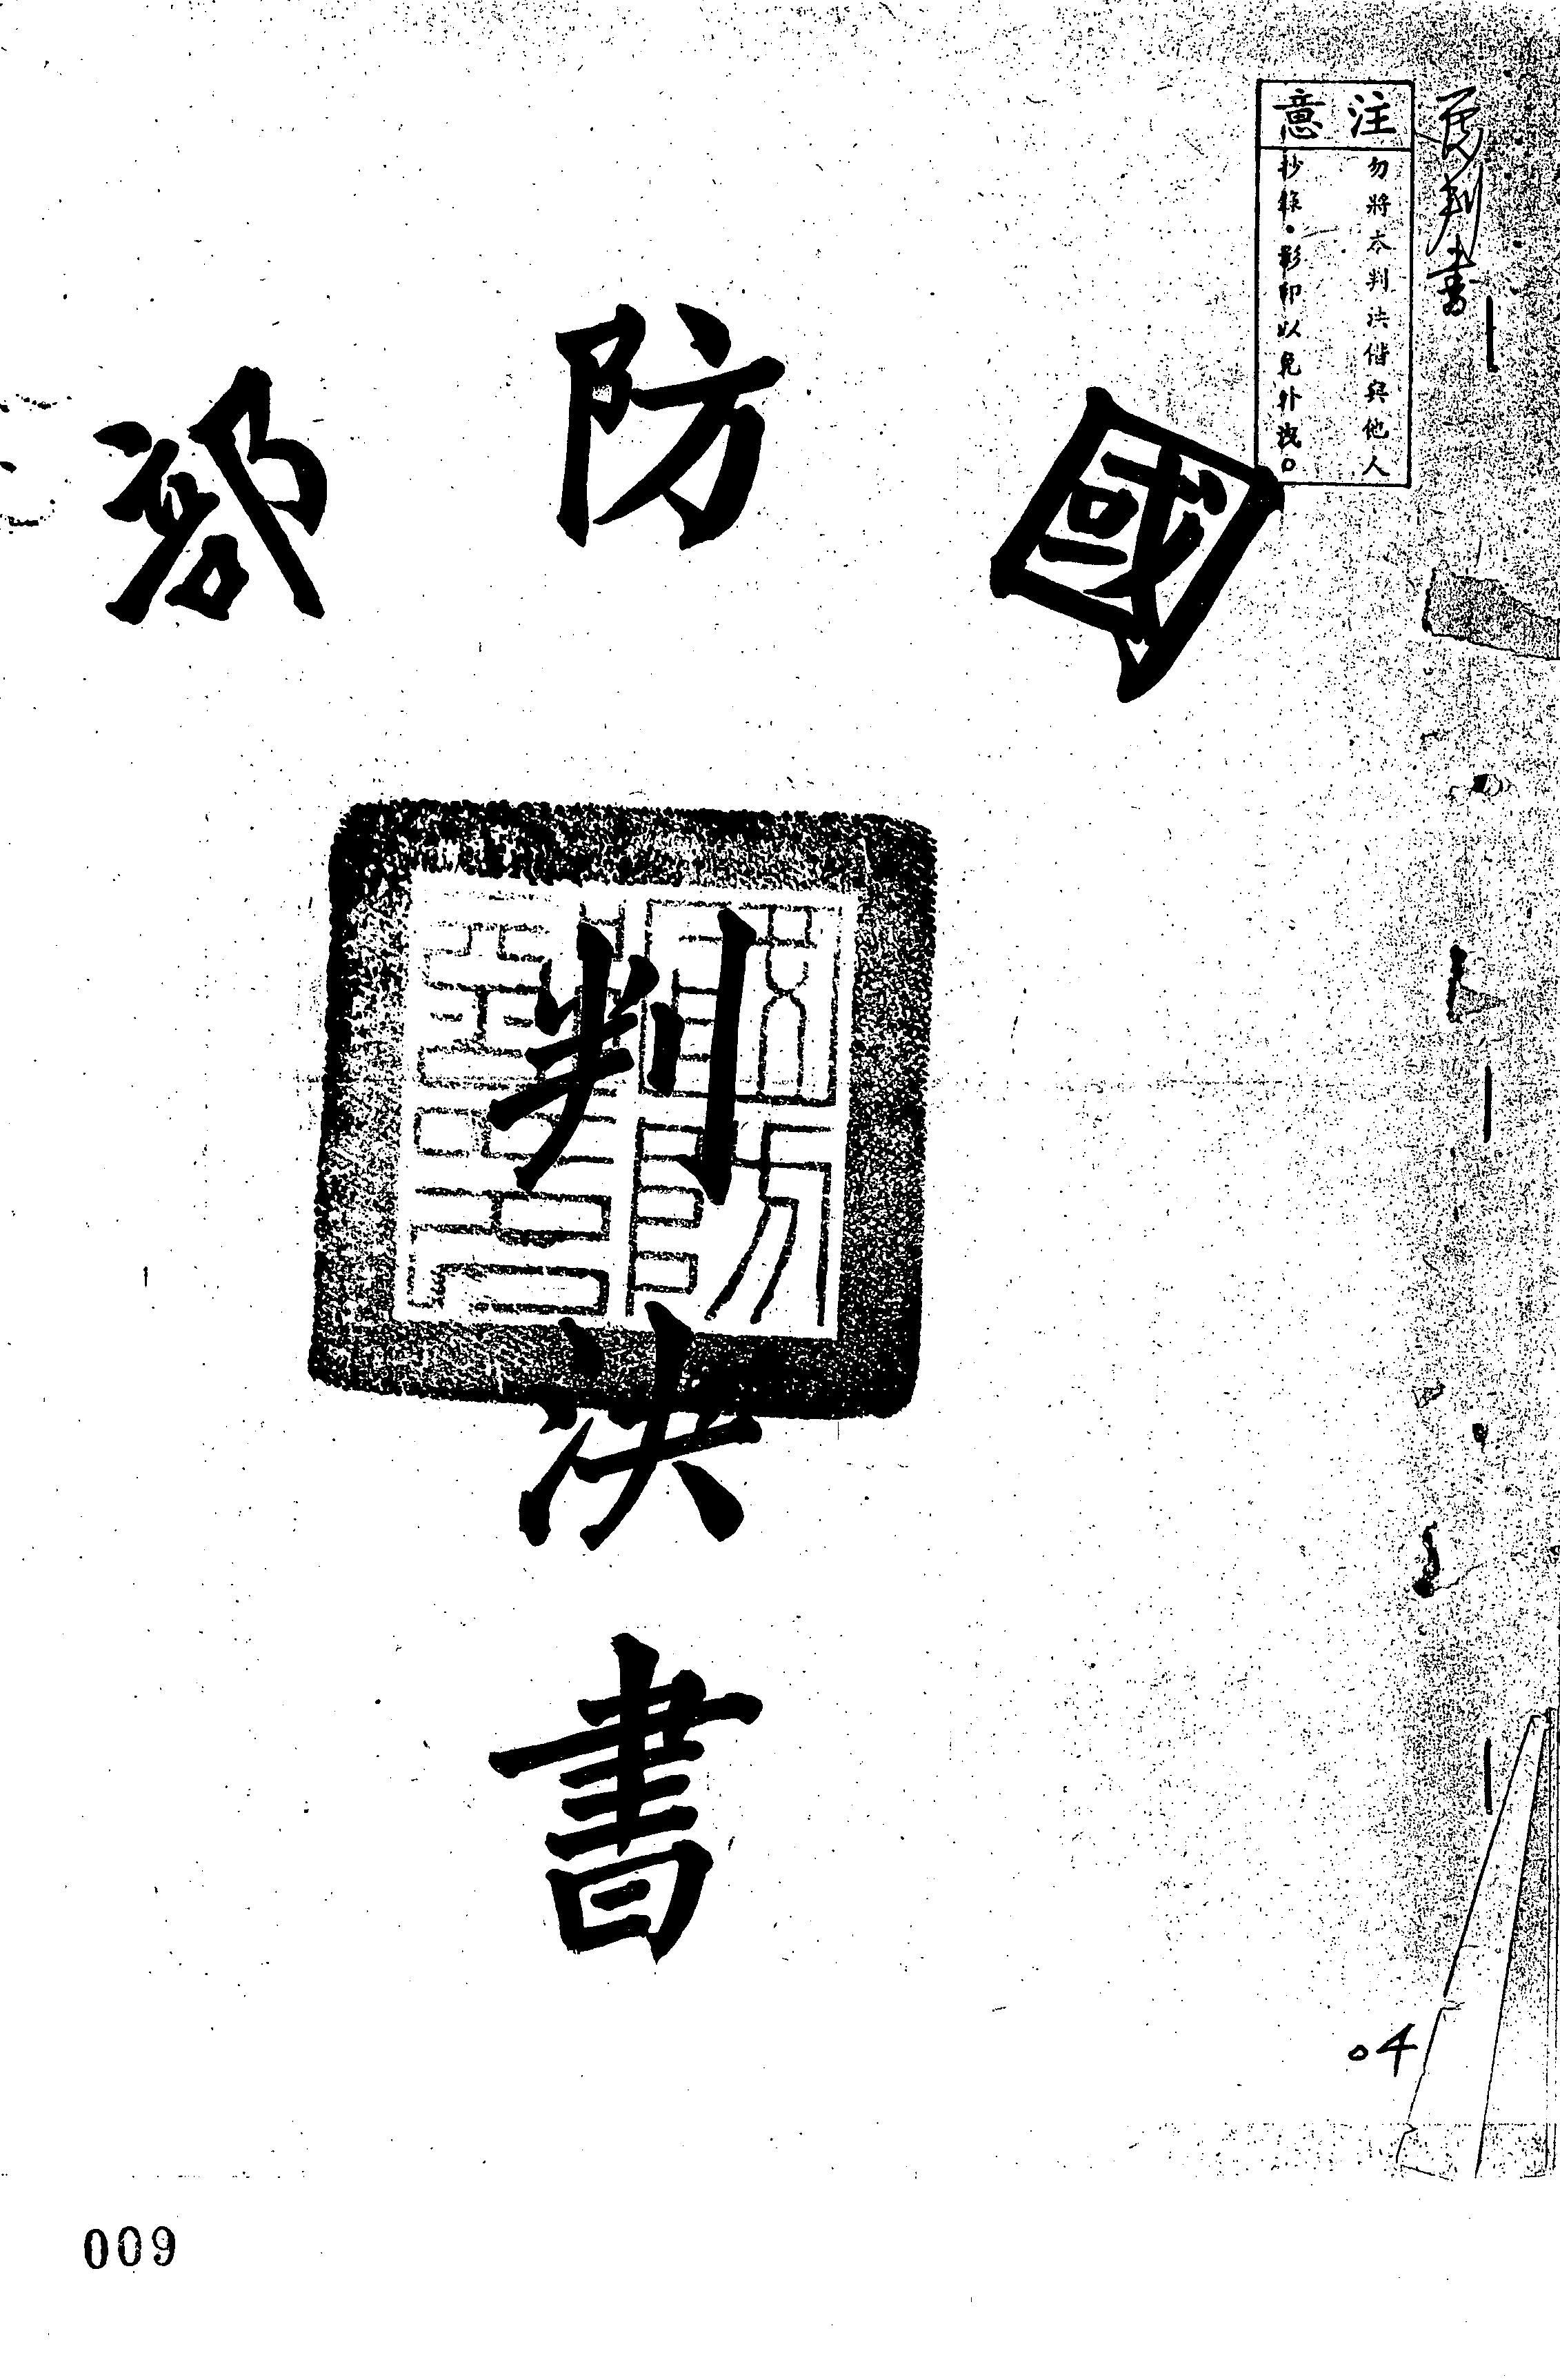 注意
勿將本判決借與他人
抄錄·影印以免外洩。
國防部
判決書
04
009